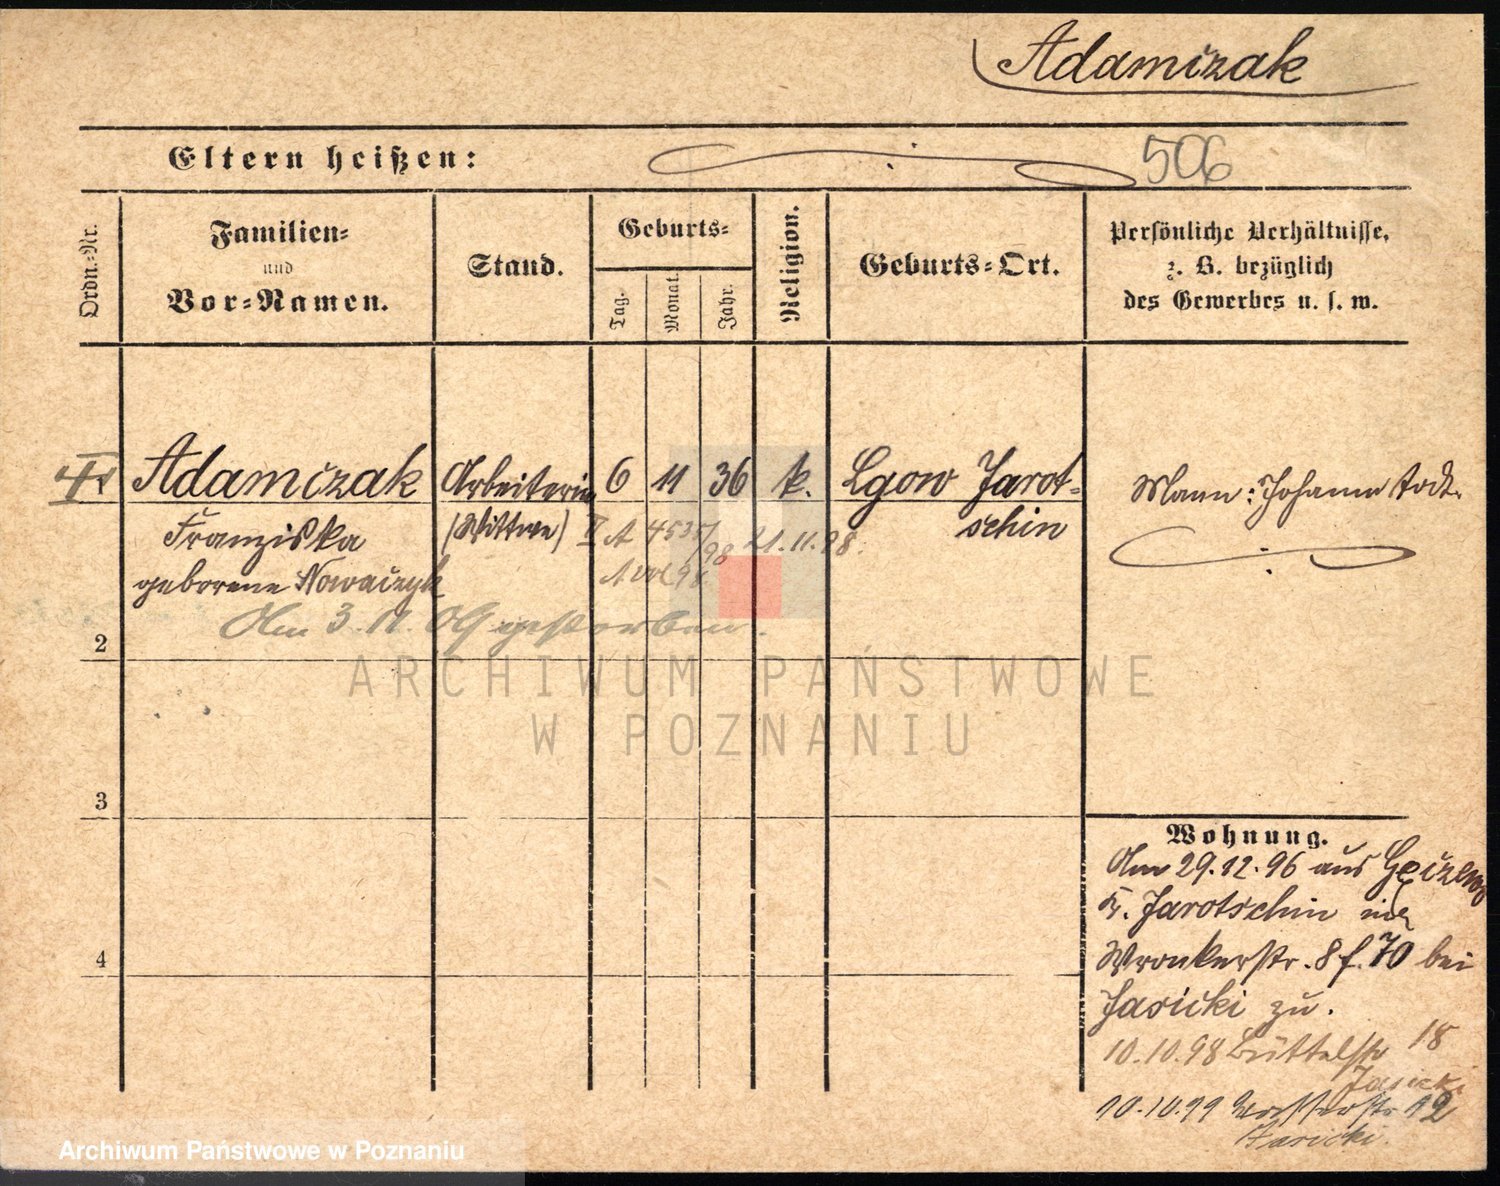 Adamczak
Eltern heißen:
506
Ordn.-Nr.
Familien-
und
Vor-Namen.
Stand.
Geburts-
Tag.
Monat.
Jahr.
Religion.
Geburts-Ort.
Persönliche Verhältnisse,
z. B. bezüglich
des Gewerbes u. s. w.
Adamczak Arbeiterin 6 11 36 k. Lgow Jarot-
schin
Mann: Johann todt.
Franziska (Wittwe) A 4535/98 21.11.98.
geborene Nowaczyk
Am 3.11.09 gestorben.
2
ARCHIWUM PAŃSTWOWE
W POZNANIU
3
4
Wohnung.
Am 29.12.96 aus
Kr. Jarotschin
Wronkerstr. 8 f. 70 bei
Jasicki zu.
10.10.98 Büttelstr 18
Jasicki
10.10.99 12
Jasicki.
Archiwum Państwowe w Poznaniu